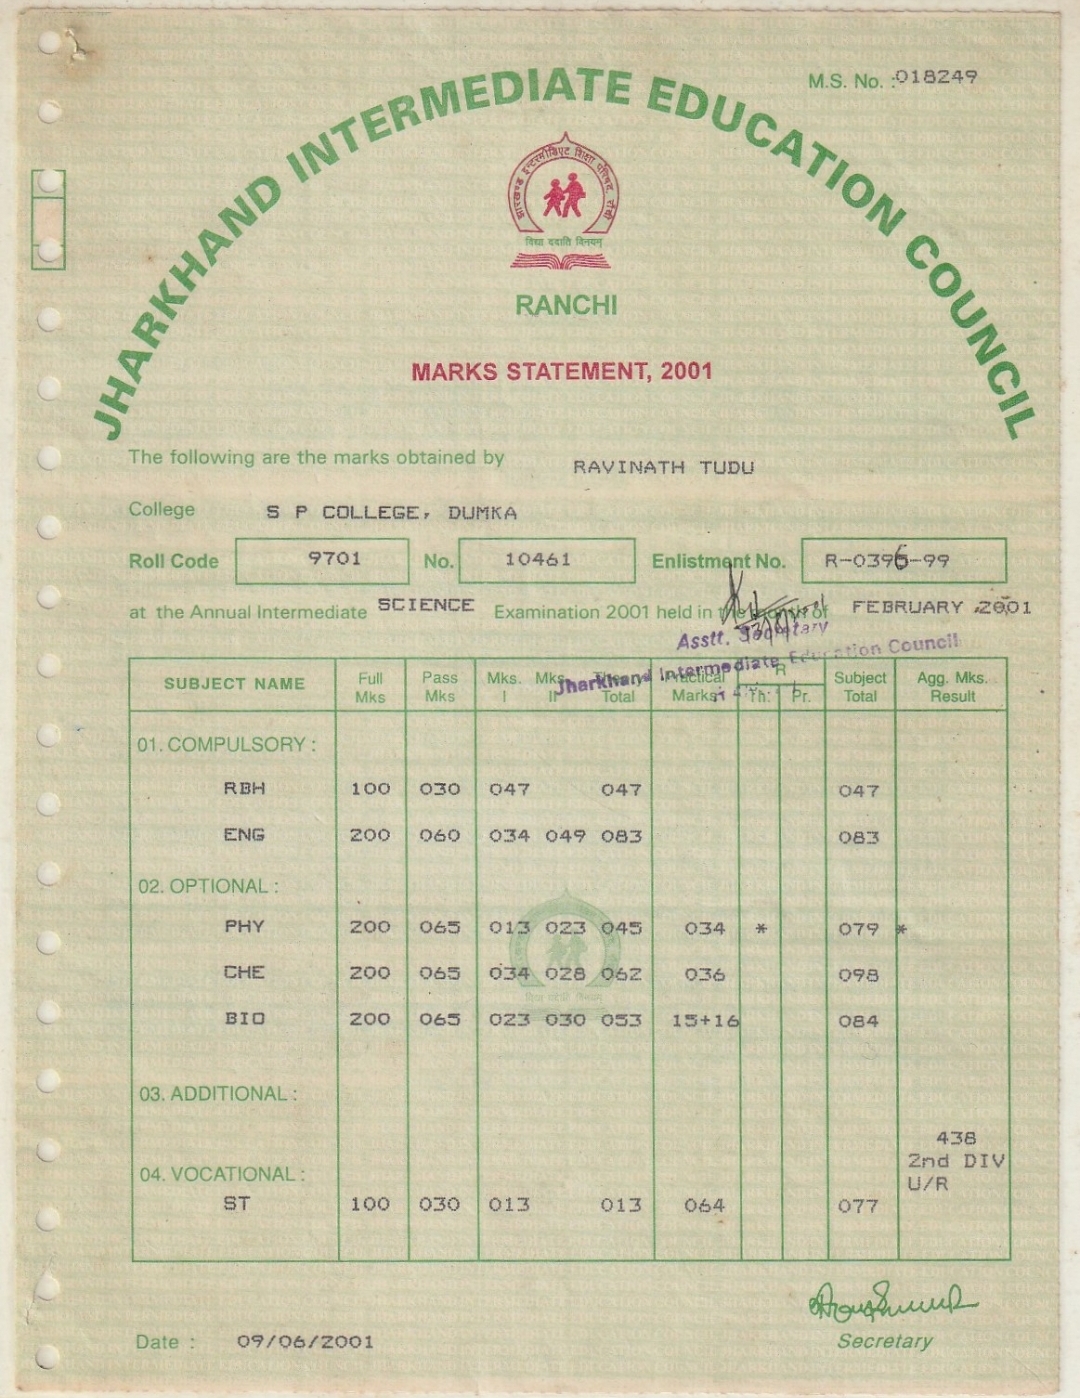 M.S. No. :018249
JHARKHAND INTERMEDIATE EDUCATION COUNCIL
झारखण्ड इन्टरमीडिएट शिक्षा परिषद, राँची
विद्या ददाति विनयम्
RANCHI
MARKS STATEMENT, 2001
The following are the marks obtained by RAVINATH TUDU
College S P COLLEGE, DUMKA
Roll Code 9701 No. 10461 Enlistment No. R-0396-99
at the Annual Intermediate SCIENCE Examination 2001 held in the month of FEBRUARY 2001
Asstt. Secretary
Jharkhand Intermediate Education Council
SUBJECT NAME Full Mks Pass Mks Mks. I Mks. II Total Practical Marks R Th. Pr. Subject Total Agg. Mks. Result
01. COMPULSORY :
RBH 100 030 047 047 047
ENG 200 060 034 049 083 083
02. OPTIONAL :
PHY 200 065 013 023 045 034 * 079 *
CHE 200 065 034 028 062 036 098
BIO 200 065 023 030 053 15+16 084
03. ADDITIONAL :
438
2nd DIV
04. VOCATIONAL :
U/R
ST 100 030 013 013 064 077
Secretary
Date : 09/06/2001